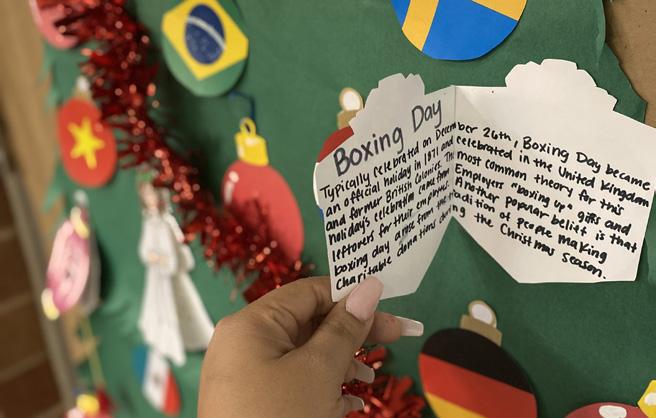 Boxing Day
Typically celebrated on December 26th, Boxing Day became
an official holiday in 1871 and celebrated in the United Kingdom
and former British Colonies. The most common theory for this
holiday's celebration came from Employers "boxing up" gifts and
leftovers for their employees. Another popular belief is that
boxing day arose from the tradition of people making
Charitable donations during the Christmas season.